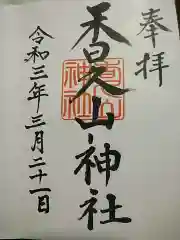 奉拝
香久山神社
令和三年三月二十一日